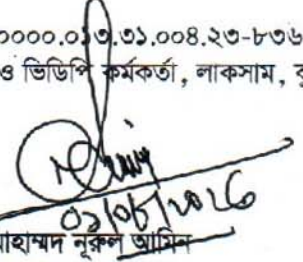 ০০০০.০১৩.৩১.০০৪.২৩-৮৩৬
ও ভিডিপি কর্মকর্তা, লাকসাম, কু
মোহাম্মদ নূরুল আমিন